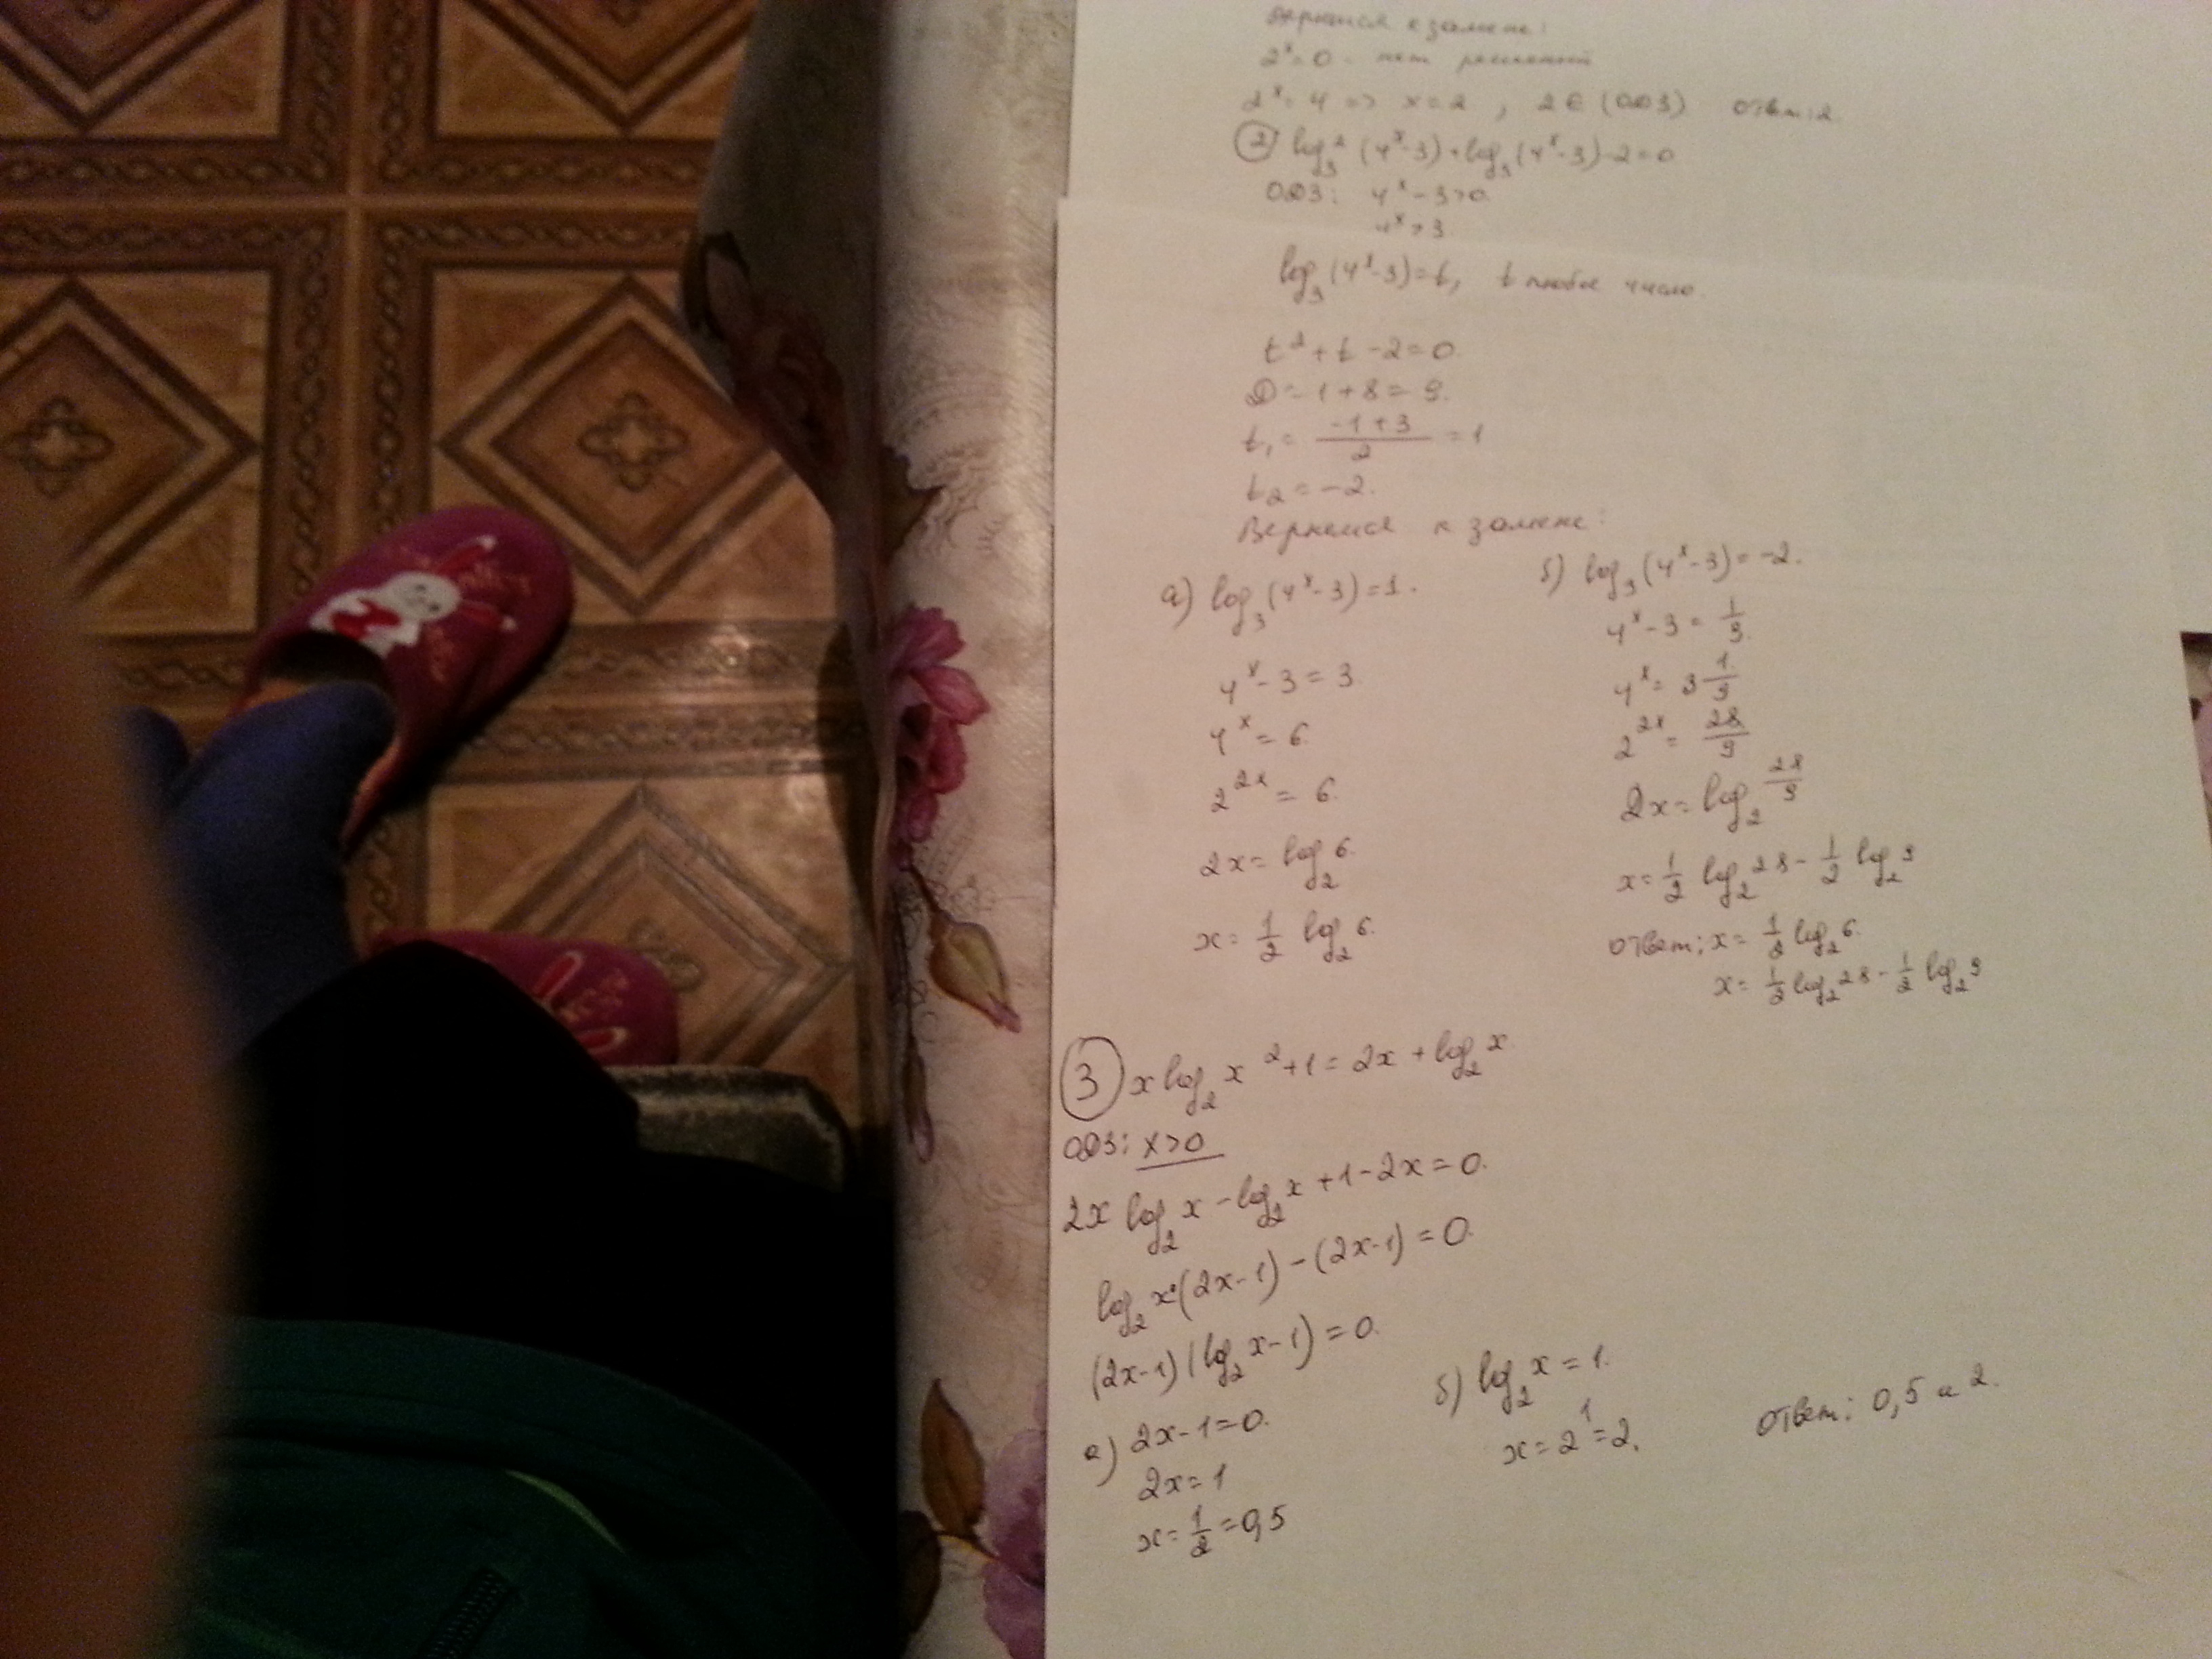 Вернемся к замене:
2^x = 0 - нет решений
2^x = 4 => x = 2 , 2 ∈ (ОДЗ) ответ: 2.
② log₃² (4^x - 3) + log₃ (4^x - 3) - 2 = 0
ОДЗ: 4^x - 3 > 0.
4^x > 3.
log₃ (4^x - 3) = t, t любое число.
t² + t - 2 = 0.
D = 1 + 8 = 9.
t₁ = (-1 + 3)/2 = 1
t₂ = -2.
Вернемся к замене:
а) log₃ (4^x - 3) = 1.
4^x - 3 = 3.
4^x = 6.
2^2x = 6.
2x = log₂ 6.
x = 1/2 log₂ 6.
б) log₃ (4^x - 3) = -2.
4^x - 3 = 1/9.
4^x = 3 1/9
2^2x = 28/9
2x = log₂ 28/9
x = 1/2 log₂ 28 - 1/2 log₂ 9
ответ: x = 1/2 log₂ 6.
x = 1/2 log₂ 28 - 1/2 log₂ 9
③ x log₂ x² + 1 = 2x + log₂ x.
ОДЗ: x > 0
2x log₂ x - log₂ x + 1 - 2x = 0.
log₂ x (2x - 1) - (2x - 1) = 0.
(2x - 1) (log₂ x - 1) = 0.
а) 2x - 1 = 0.
2x = 1
x = 1/2 = 0,5
б) log₂ x = 1.
x = 2^1 = 2.
ответ: 0,5 и 2.